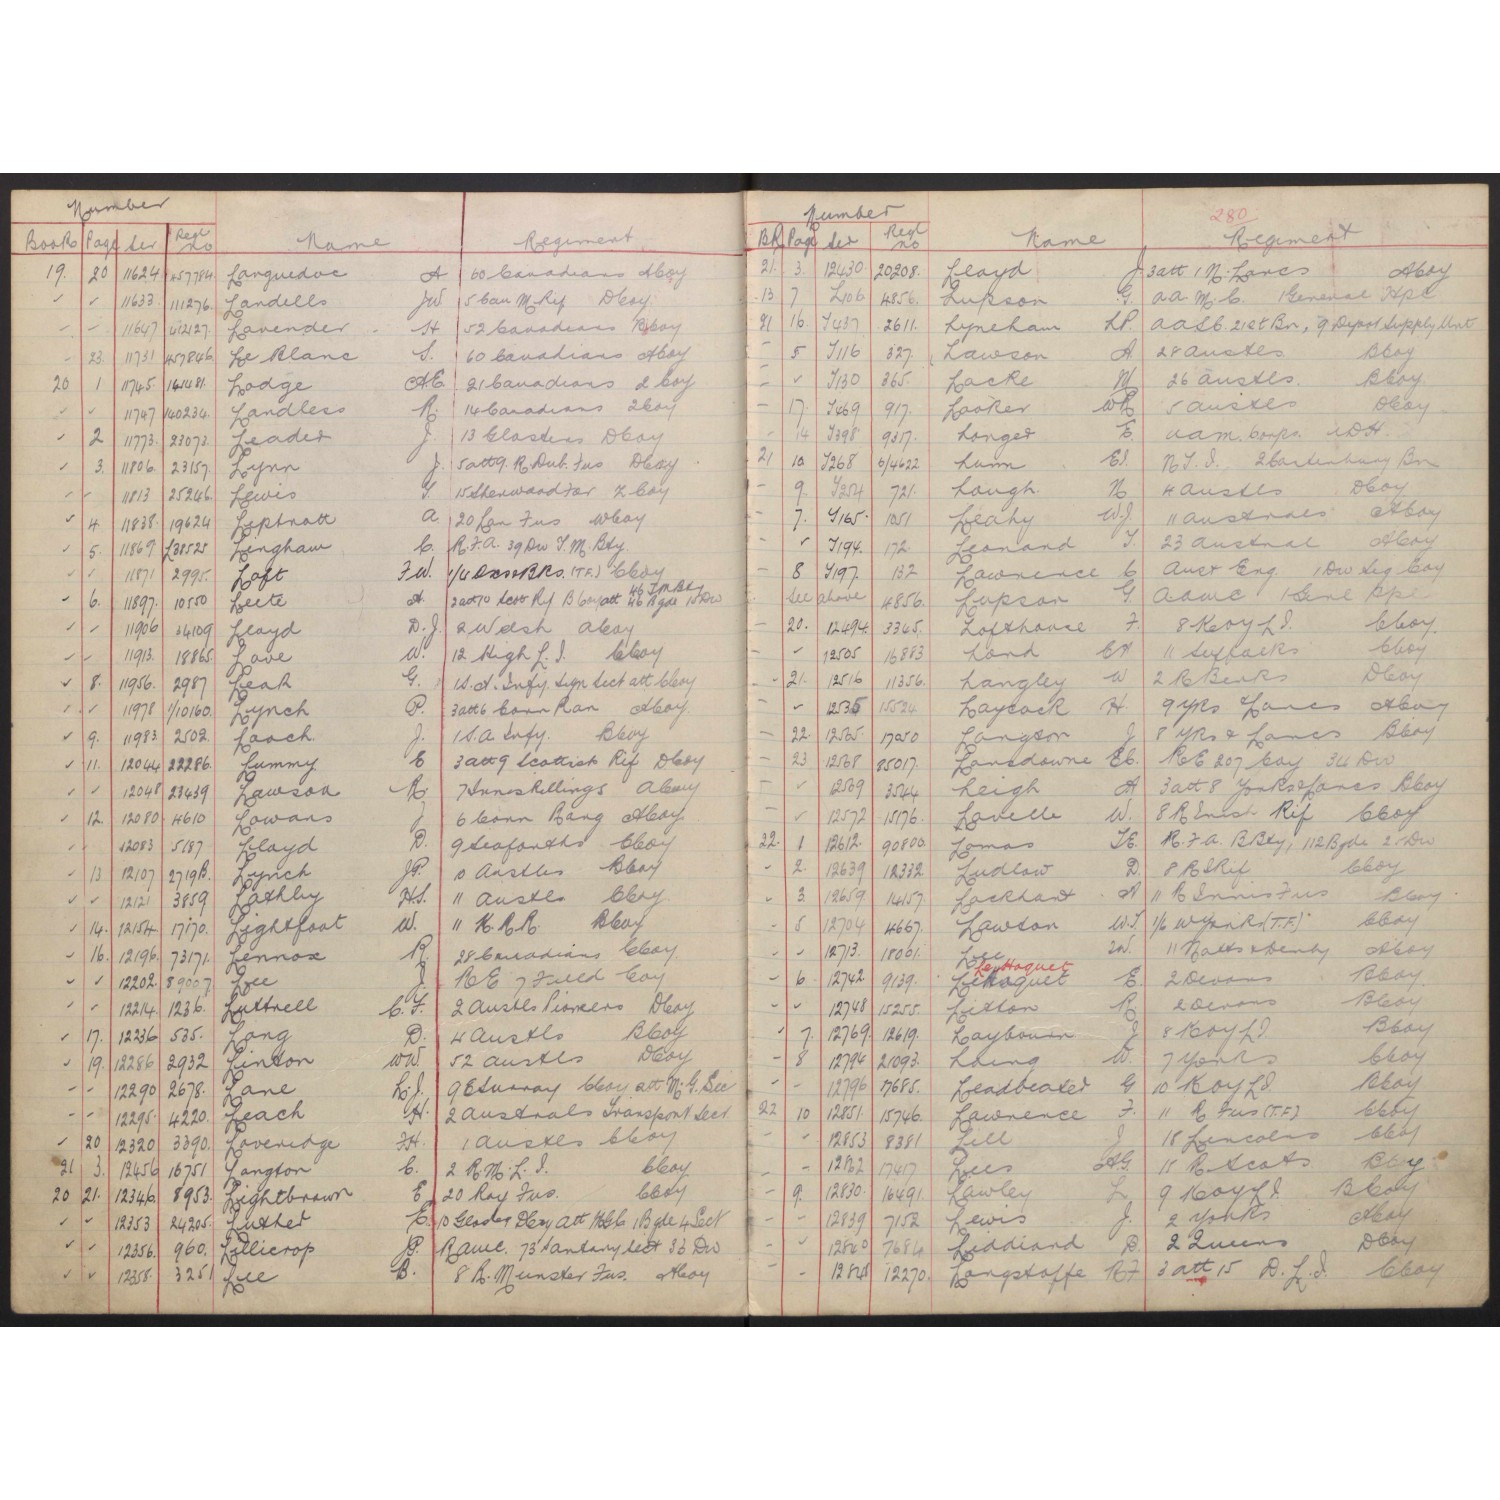 Number
Book Page Ser Regt no Name Regiment
19. 20 11624 457784 Languedoc A 60 Canadians A Coy
✓ ✓ 11633. 111276. Landells JW 5 Can M. Rif D Coy
11647 412127. Lavender H 52 Canadians B Coy
23. 11731 457846. Le Blanc S. 60 Canadians A Coy
20 1 11745 Lodge AE 21 Canadians 2 Coy
✓ ✓ 11747 140234. Landless R. 14 Canadians 2 Coy
✓ 2 11773. 23073. Leader J. 13 Glosters D Coy
✓ 3. 11806. 23157. Lynn J. 5 att 9. R. Dub. Fus D Coy
11813 25246. Lewis T. 15 Sherwood For Z Coy
✓ 4. 11838. 19624 Liptrott A 20 Lan Fus W Coy
✓ 5. 11869 L38525 Lingham C. R.F.A. 39 Div T.M. Bty
✓ ✓ 11871 2995. Loft FW. 1/4 Ox & Bks. (T.F.) C Coy
✓ 6. 11897. 10550 Leete A. 2 att 10 Scott Rif B Coy att 46 T.M Bty 46 Bgde 15 Div
✓ ✓ 11906 34109 Lloyd D.J. 2 Welsh A Coy
11913. 18865. Love W. 12 High L.I. C Coy
✓ 8. 11956. 2987 Lear G. 1 S.A. Infy. Sign Sect att C Coy
✓ ✓ 11978 1/10160. Lynch P. 3 att 6 Conn Ran A Coy.
✓ 9. 11983 2502. Looch. J. 1 S.A Infy. B Coy
✓ 11. 12044 22286. Lummy E 3 att 9 Scottish Rif D Coy
✓ ✓ 12048 28439 Lawson R. 7 Inniskillings A Coy
✓ 12. 12080 4610 Lowans J 6 Conn Rang A Coy.
12083 5187 Lloyd D. 9 Seaforths C Coy
✓ 13 12107 2719B. Lynch JP. 10 Austls B Coy
✓ ✓ 12121 3859 Lathley HS. 11 Austls C Coy.
✓ 14. 12154 17170. Lightfoot W. 11 K.R.R. B Coy
✓ 16. 12196. 73171. Lennox R 28 Canadians C Coy
✓ ✓ 12202. 89007 Lee J. R E 7 Field Coy
✓ ✓ 12214. 1236. Luttrell C.G. 2 Austls Pioneers D Coy
✓ 17. 12236 535. Lang D. 4 Austls B Coy
✓ 19. 12286 2932 Linton WW. 52 Austls D Coy
12290 2678. Lane L.J. 9 E Surray C Coy att M.G. Sec
12295. 4220. Leach H. 2 Australs Transport Sect
✓ 20 12320 3390. Loveridge FH. 1 Austls C Coy
21 3. 12456 16751 Langton C. 2 R.M.L.I. C Coy
20 21. 12346. 8953. Lightbrown E 20 Roy Fus. C Coy
✓ ✓ 12353 24205. Luther E. 10 Glosters D Coy att M.G.C 1 Bgde 4 Sect
✓ ✓ 12356. 960. Lillicrop JP. R.A.M.C. 73 Sanitary Sect 33 Div
✓ ✓ 12358. 3251 Lee B. 8 R. Munster Fus. A Coy
Number 280
BK Page Ser Regt no Name Regiment
21. 3. 12430 20208. Lloyd J. 3 att 1 N. Lancs A Coy
13 7 L106 4856. Lupson G. A A M.C. 1 General Hpc
21 16. T437 2611. Lyneham LP. AASC. 21st Bn, 9 Depot Supply Unit
5 T116 327. Lawson A 28 Austls B Coy
✓ T130 365. Locke W 26 Austls. B Coy
17. T469 917. Looker WR 5 Austls D Coy
14 T398 9317. Longer E. A.A.M. Corps. 1 D.H.
21 10 T268 6/4622 Lunn EJ. N.Z.I. 2 Canterbury Bn
9. T254 721. Lough. N. 4 Austls D Coy
7. T165 1051 Leahy WJ. 11 Australs A Coy
✓ T194. 172. Leonard T. 23 Austral A Coy
8 T197 132 Lawrence C Aust Eng. 1 Div Sig Coy
See above 4856. Lupson G. AAMC 1 Genl Hpl
20. 12494. 3345. Lofthouse F. 8 KOYLI. C Coy.
✓ 12505 16883 Lond CH 11 Suffolks C Coy
21. 12516 11356. Langley W 2 R Berks D Coy
✓ 12535 15524 Laycock H. 9 Yks Lancs A Coy
22. 12565. 17050 Langton J 8 Yks & Lancs B Coy
23 12568 85017. Lansdowne EC. RE 207 Coy 34 Div
✓ 12569 3544 Leigh A 3 att 8 Yorks & Lancs B Coy
12572 15176. Lavelle W. 8 R Innisk Rif C Coy
22. 1 12612. 90800. Lomas TE. R.F.A. B Bty, 112 Bgde 25 Div
2. 12639 12332 Ludlow D. 8 R I Rif C Coy
3. 12659 14157. Lockhart A 11 R Innis Fus B Coy.
5 12704 4667. Lawton WT. 1/6 W Yorks (T.F.) C Coy
✓ 12713. 18001. Lee W. 11 Notts & Derby A Coy
Le Hoquet
6. 12742 9139. Lehoquet E. 2 Devons B Coy.
✓ 12748 15255. Litton R 2 Devons B Coy
7. 12769. 12619. Laybourn J 8 KOYLI B Coy
8 12794 21093. Laing W. 7 Yorks C Coy
12796 7685. Leadbeater G 10 KOYLI. B Coy
22 10 12851. 15746. Lawrence F. 11 R Fus (T.F.) C Coy
12853 8381 Lill J 18 Lincolns C Coy
12862 17417. Lees AG. 15 R Scots B Coy
9. 12830. 16491 Lawley L. 9 KOYLI. B Coy
12839 7152 Lewis J. 2 Yorks A Coy
✓ 12840 7684 Liddiard D. 2 Queens D Coy
12848 12270. Langstaffe RF 3 att 15 D.L.I. C Coy